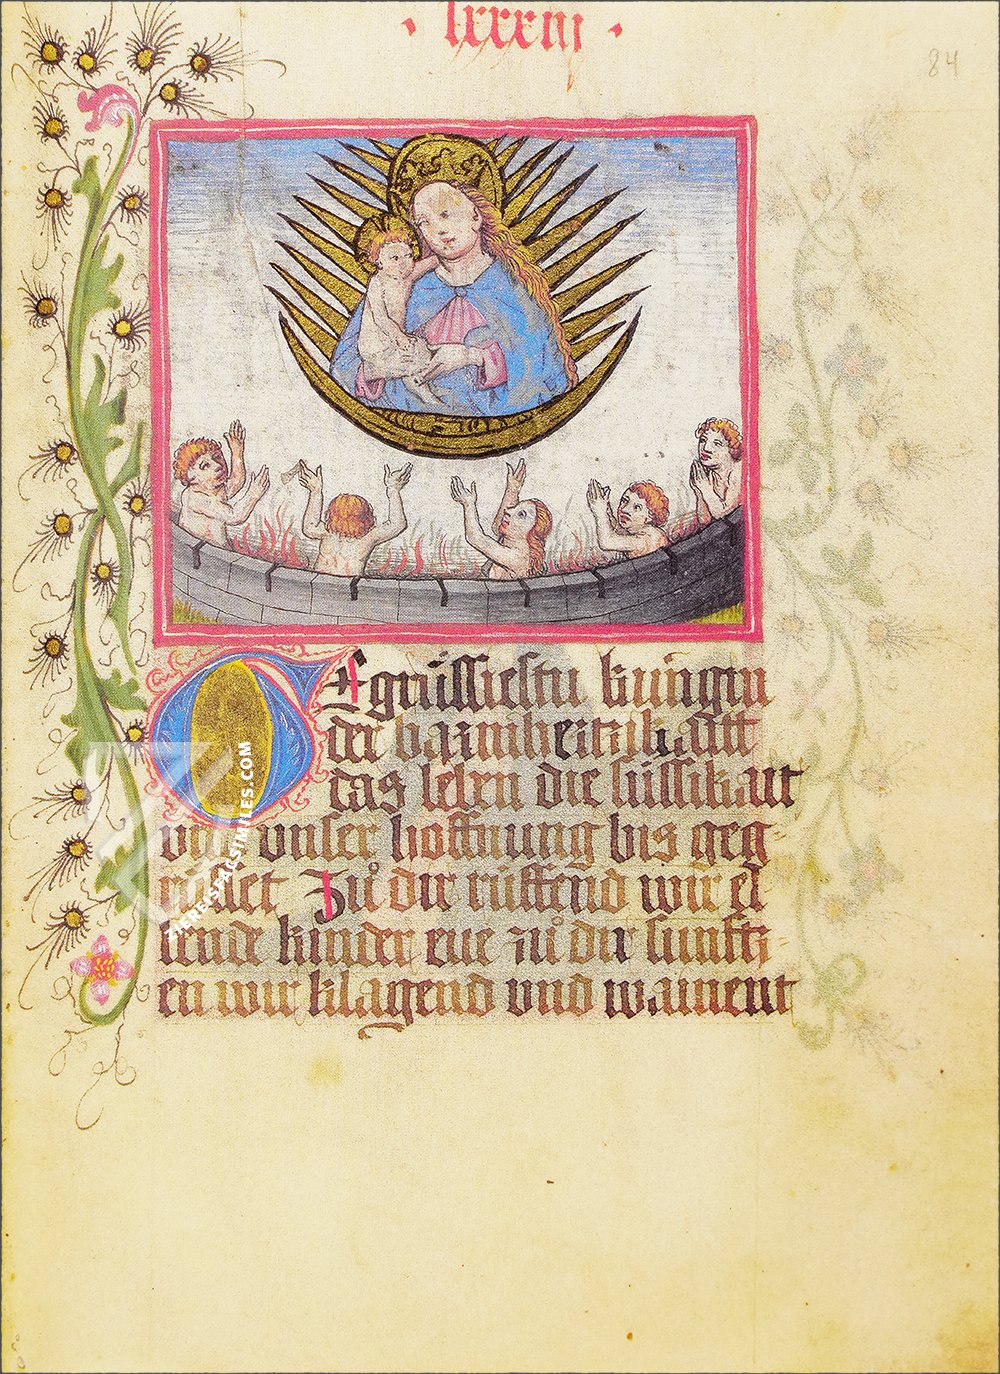 · lxxxiij ·
84
Egrüssiestu küngin
der barmhertzikaitt
das leben die süssikait
vnd vnser hoffnung bis geg
rüsset Zů dir rüffend wir el
lende kinder eue zů dir sunftz
en wir klagend vnd wainent
ZIEREISFACSIMILES.COM